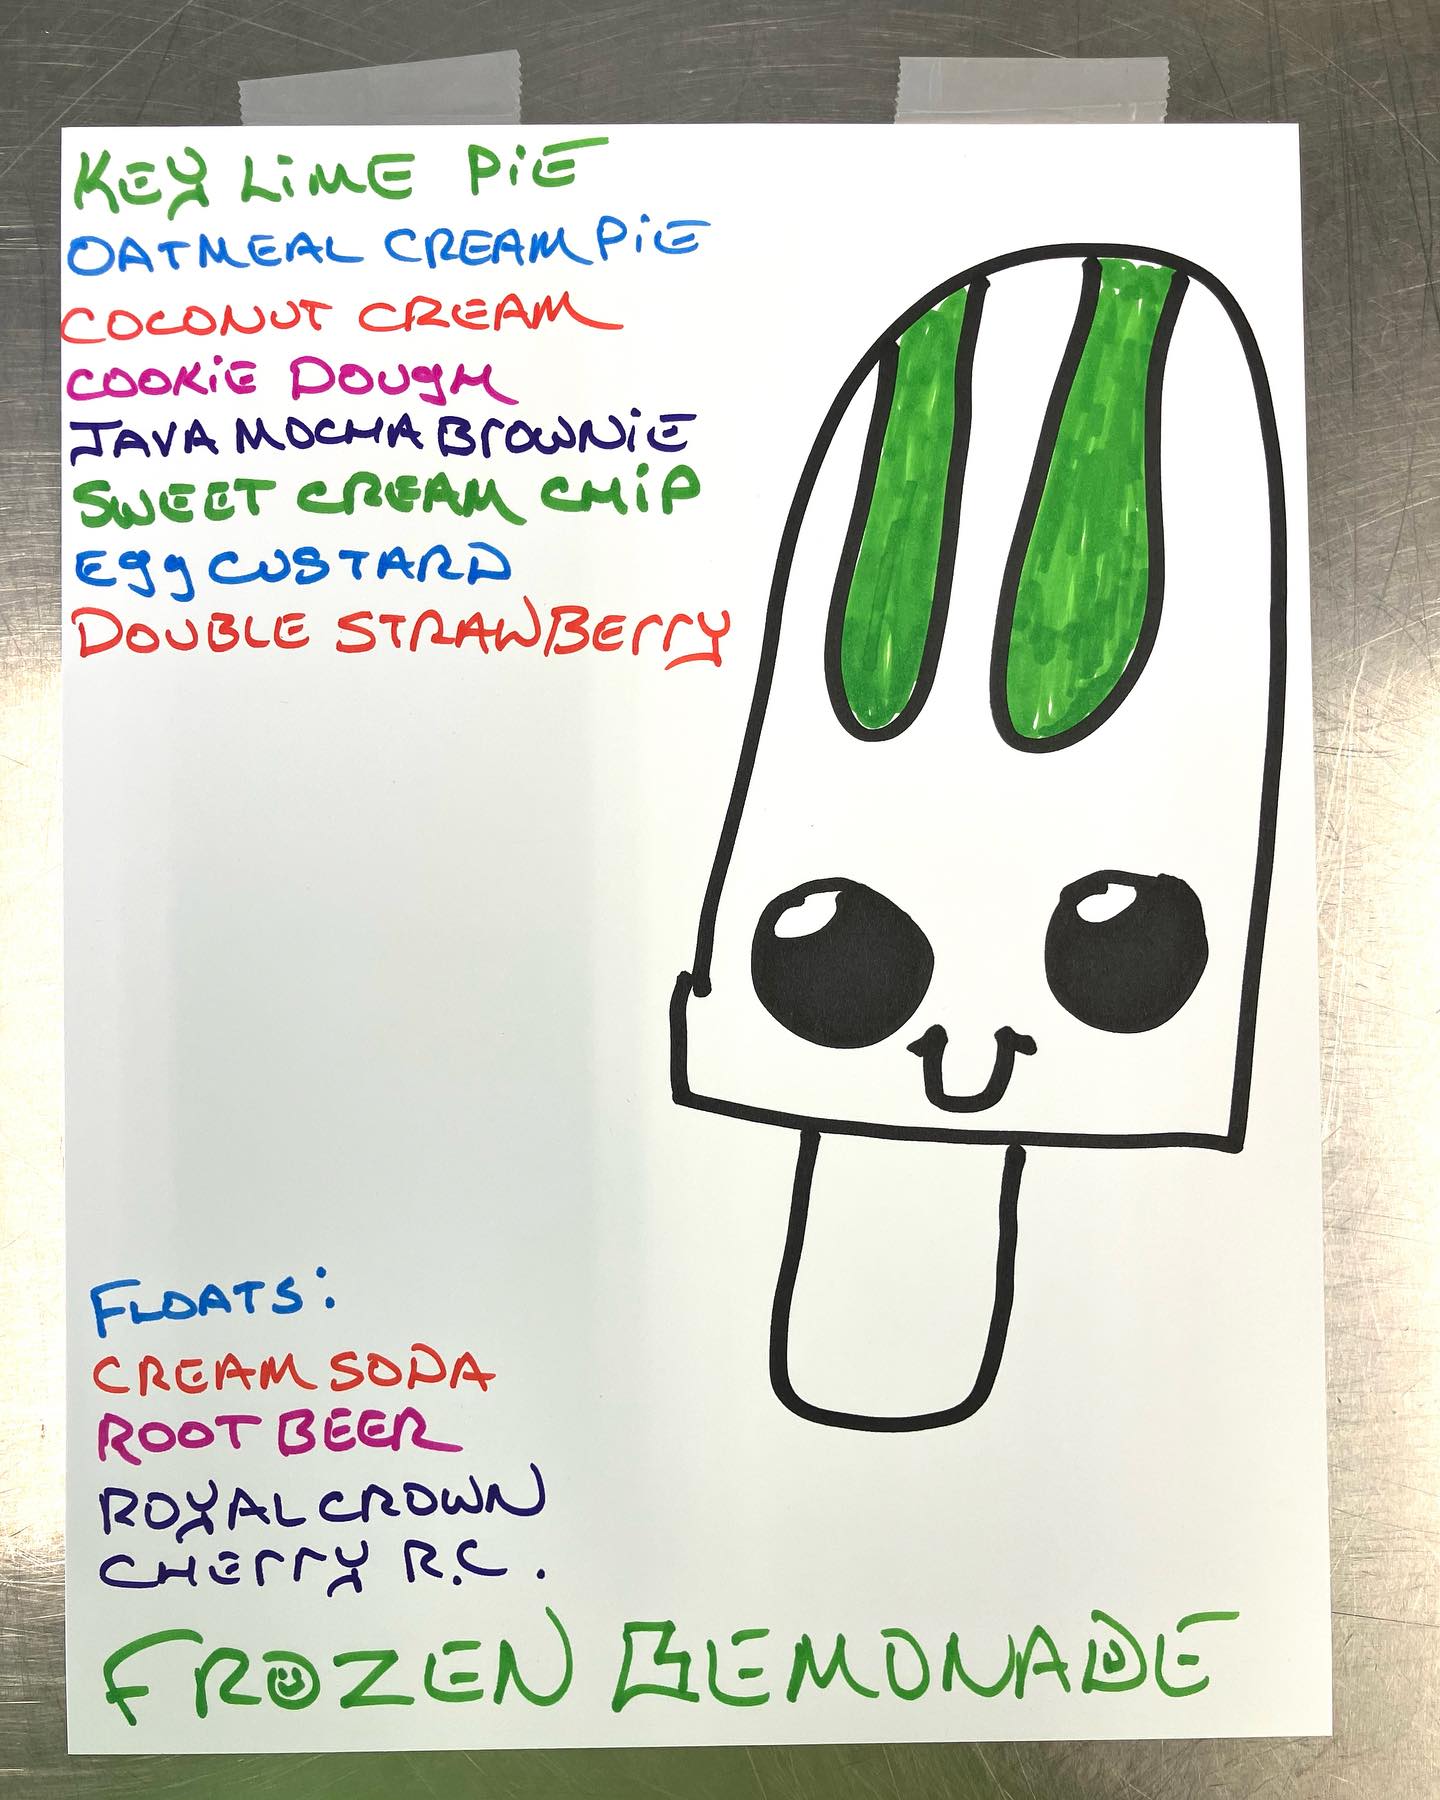 KEY LIME PIE
OATMEAL CREAM PIE
COCONUT CREAM
COOKIE DOUGH
JAVA MOCHA BROWNIE
SWEET CREAM CHIP
EGG CUSTARD
DOUBLE STRAWBERRY
FLOATS:
CREAM SODA
ROOT BEER
ROYAL CROWN
CHERRY R.C.
FROZEN LEMONADE